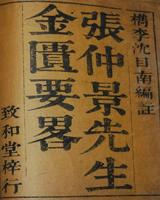 檇李沈目南編註
張仲景先生
金匱要畧
致和堂梓行